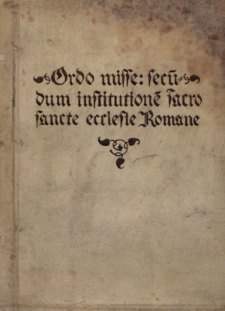 Ordo misse: secū
dum institutionē sacro
sancte ecclesie Romane